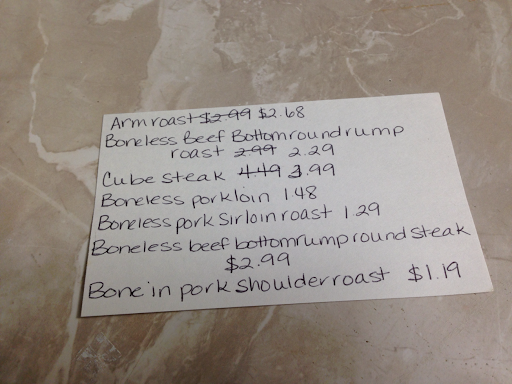 Arm roast $2.99 $2.68
Boneless Beef Bottom round rump
roast 2.99 2.29
Cube steak 4.49 3.99
Boneless pork loin 1.48
Boneless pork Sirloin roast 1.29
Boneless beef bottom rump round steak
$2.99
Bone in pork shoulder roast $1.19